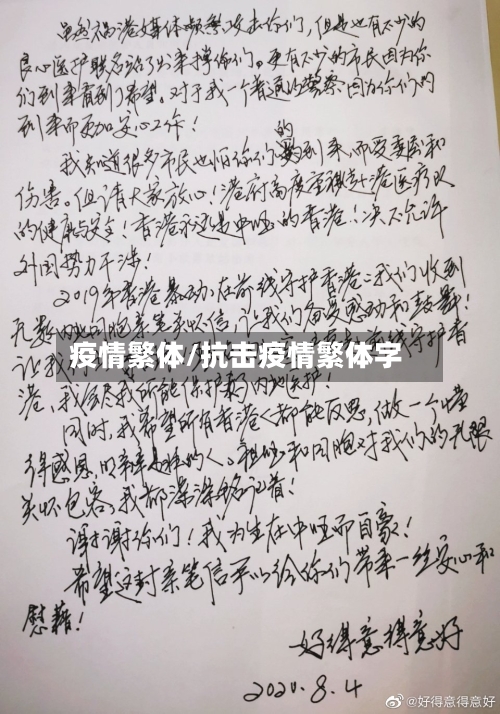 虽然祸港媒体频繁攻击你们，但是也有不少的
良心医护联名给了公来撑你们。更有不少的市民因为你
们到来看到了希望。对于我一个普通的警察因为你们的
到来而更加安心工作！
我知道很多市民也怕你们的到来而受委屈和
伤害。但请大家放心！港府高度重视赴港医疗队
的健康与安全！香港永远是中国的香港！决不允许
外国势力干涉！
2019年香港暴动，在前线守护香港，我们收到
无数内地同胞亲笔关怀信，让我们备受感动和鼓舞！
让我
守护香
港，我会尽我所能保护内地医护！
疫情繁体/抗击疫情繁体字
同时，我希望所有香港人都能反思，做一个懂
得感恩，明辨是非的人。祖国和同胞对我们的无限
关怀包容，我都深深铭记着！
谢谢你们！我为生在中国而自豪！
希望这封亲笔信可以给你们带来一丝安心和
慰藉！
好得意得意好
2020.8.4
@好得意得意好